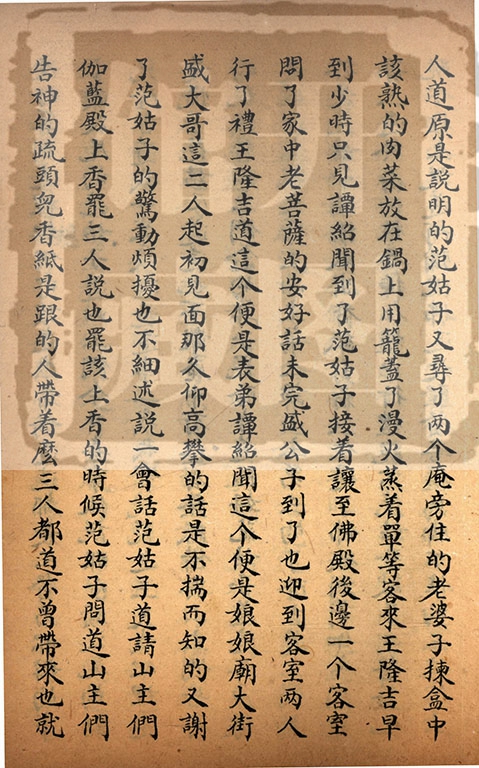 人道原是説明的范姑子又尋了两个庵旁住的老婆子揀盒中
該熟的肉菜放在鍋上用籠蓋了漫火蒸着單等客來王隆吉早
到少時只見譚紹聞到了范姑子接着讓至佛殿後邊一个客室
問了家中老菩薩的安好話未完盛公子到了也迎到客室两人
行了禮王隆吉道這个便是表弟譚紹聞這个便是娘娘廟大街
盛大哥這二人起初見面那久仰高攀的話是不揣而知的又謝
了范姑子的驚動煩擾也不細述説一會話范姑子道請山主們
伽藍殿上香罷三人説也罷該上香的時候范姑子問道山主們
告神的疏頭兒香紙是跟的人帶着麽三人都道不曾帶來也就